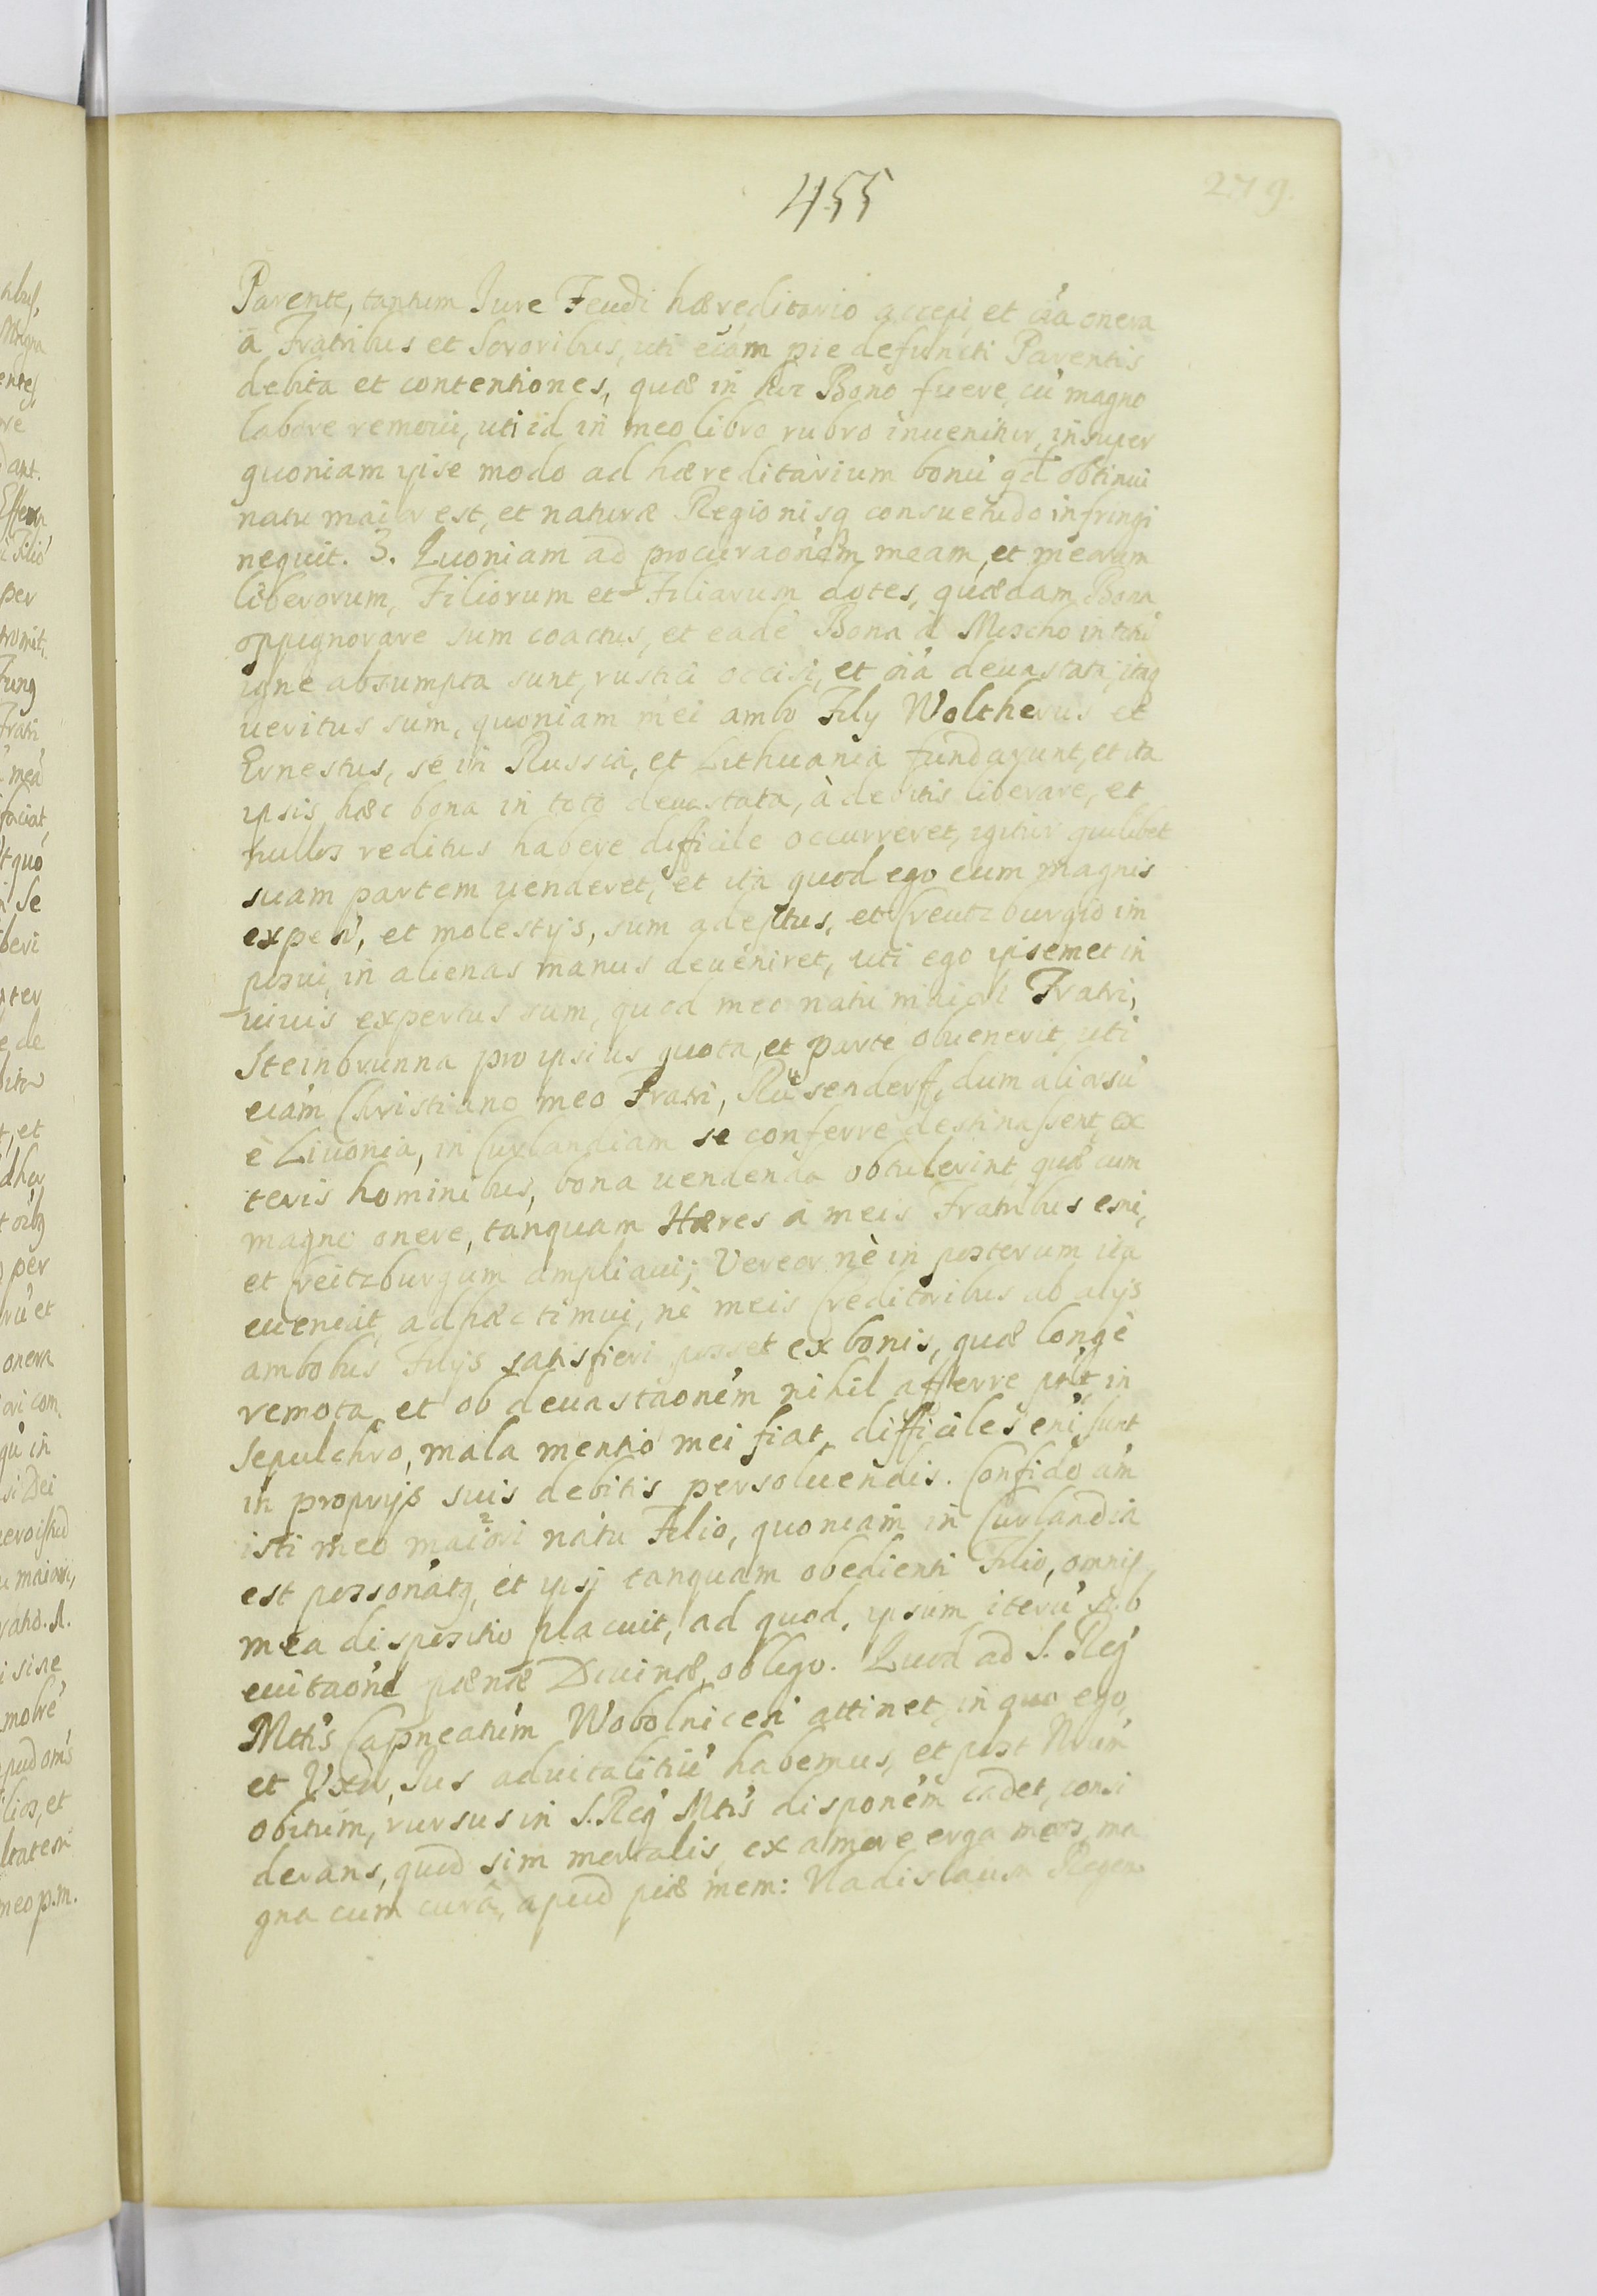 455
279.
Parente, tantum Jure Feudi hæreditario accepi, et oĩa onera
a Fratribus et Sororibus, uti eciám pie defuncti Parentis
debita et contentiones, quæ in hoc Bono fuere, cũ magno
labore remoui, uti id in meo libro rubro inuenitur, insuper
quoniam ipse modo ad hæreditarium bonũ qd obtinui
natu maior est, et naturæ Regionisq consuetudo infringi
nequit. 3. Quoniam ad procuraoném meam, et mearum
liberorum, Filiorum et Filiarum dotes, quædam Bona
oppignorare sum coactus, et eadẽ Bona à Moscho in totũ
igne absumpta sunt, rustici occisi, et oĩa deuastata, itaq
ueritus sum, quoniam mei ambo Filij Woltherus et
Ernestus, se in Russia, et Lithuania fundarunt, et ita
ipsis hæc bona in toto deuastata, à debitis liberare, et
nullos reditus habere difficile occurreret, igitur quilibet
suam partem uenderet, et ita quod ego cum magnis
expeñ, et molestijs, sum adeptus, et Creutzburgio im
posui, in alienas manus deueniret, uti ego ipsemet in
uiuis expertus sum, quod meo natu maiori Fratri,
Steinbrunna pro ipsius quota, et parte obuenerit, uti
eciám Christiano meo Fratri, Rusenderf, dum aliorsũ
è Liuonia, in Curlandiam se conferre destinassent, ex
teris hominibus, bona uendenda obtulerint, quæ cum
magno onere, tanquam Hæres à meis Fratribus emi,
et Creitzburgum ampliaui; Vereor nè in posterum ita
eueniat, adhæc timui, nè meis Creditoribus ab alijs
ambobus Filijs satisfieri posset ex bonis, quæ longè
remota, et ob deuastaoném nihil afferre pñt, in
Sepulchro, mala mentio mei fiat, difficiles eñi sunt
in proprijs suis debitis persoluendis. Confido aũm
isti meo maiori natu Filio, quoniam in Curlandia
est possonatq, et ipsi tanquam obedienti Filio, omnis
mea dispositio placuit, ad quod, ipsum iterũ sub
euitaone pænæ Diuinæ, obligo. Quod ad S. Reg
Mtis Capneatum Wobolnicen attinet, in quo ego,
et Vxor, Jus aduitalitiũ habemus, et post Nrum
obitum, rursus in S. Reg Mtis disponém cadet, consi
derans, quod sim mortalis, ex amore erga meos, ma
gna cum cura, apud piæ mem: Vladislaum Regem